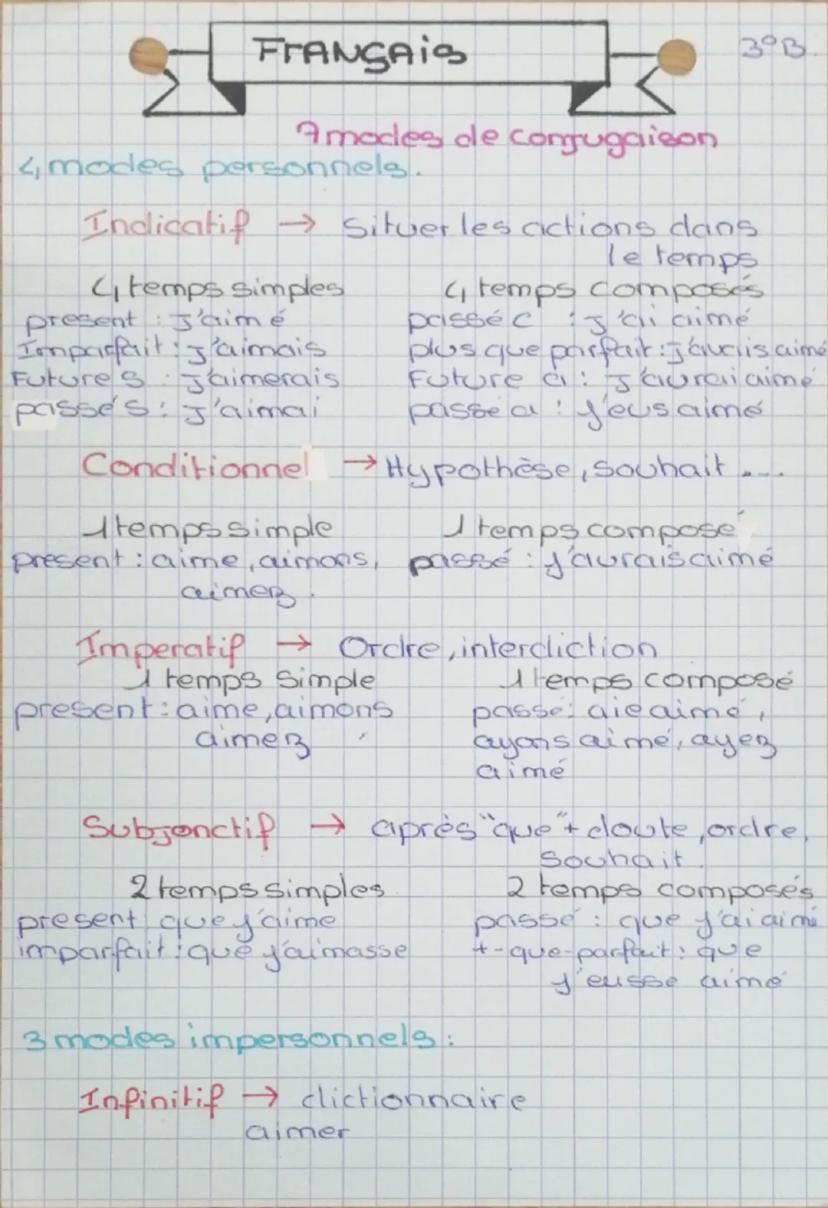 FRANÇAIS
3°B
7 modes de conjugaison
4 modes personnels.
Indicatif → situer les actions dans
le temps
4 temps simples
4 temps composés
present : j'aimé
passé c : j'ai aimé
Imparfait : j'aimais
plus que parfait : j'avais aimé
Future s : j'aimerais
Future a : j'aurai aimé
passé s : j'aimai
passe a : j'eus aimé
Conditionnel → Hypothèse, souhait ....
1 temps simple
1 temps composé
présent : aime, aimons,
passé : j'aurais aimé
aimez.
Imperatif → Ordre, interdiction
1 temps simple
1 temps composé
present : aime, aimons
passé : aie aimé,
aimez
ayons aimé, ayez
aimé
Subjonctif → après "que" + doute, ordre,
souhait.
2 temps simples
2 temps composés
present : que j'aime
passé : que j'ai aimé
imparfait : que j'aimasse
+-que-parfait : que
j'eusse aimé
3 modes impersonnels :
Infinitif → dictionnaire
aimer